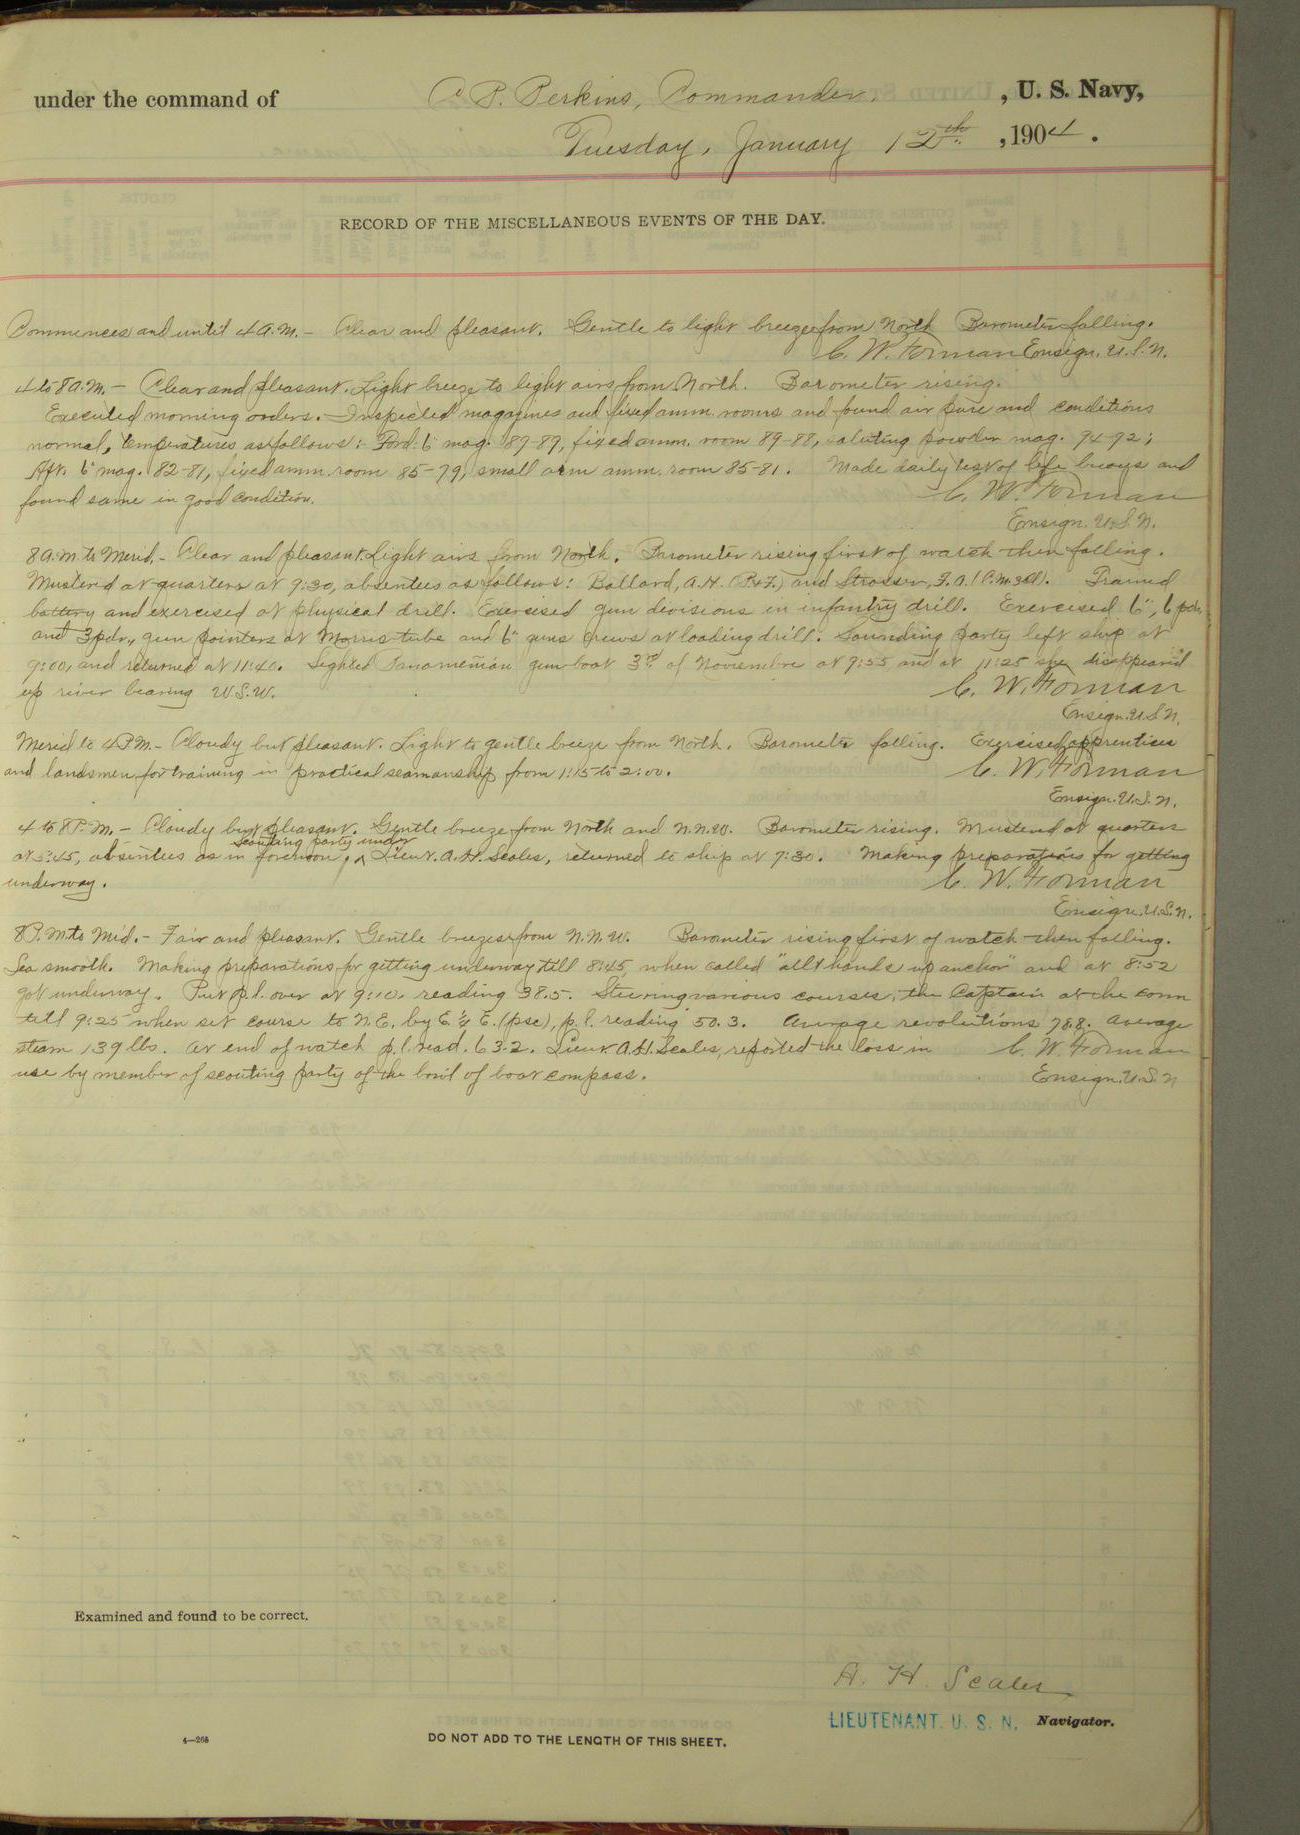 under the command of C. P. Perkins, Commander, , U. S. Navy,
Tuesday, January 12th. , 1904 .
RECORD OF THE MISCELLANEOUS EVENTS OF THE DAY.
Commences and until 4 A.M. – Clear and pleasant. Gentle to light breeze from North Barometer falling.
C. W. Forman Ensign. U.S.N.
4 to 8 A.M. – Clear and pleasant. Light breeze to light airs from North. Barometer rising.
Executed morning orders. Inspected magazines and fixed amm. rooms and found air pure and conditions
normal, temperatures as follows: Ford. 6" mag. 89-87, fixed amm. room 89-88, saluting powder mag. 94-92;
Aft. 6" mag. 82-81, fixed amm. room 85-79, small arm amm. room 85-81. Made daily test of life buoys and
found same in good condition.
C. W. Forman
Ensign. U.S.N.
8 A.M. to Merid. – Clear and pleasant. Light airs from North. Barometer rising first of watch then falling.
Mustered at quarters at 9:30, absentees as follows: Ballard, A.H. and Strasser, F.A. (P.M. 3cl). Trained
battery and exercised at physical drill. Exercised gun divisions in infantry drill. Exercised 6", 6 pdr,
and 3 pdr., gun pointers at Morris tube and 6" guns crews at loading drill. Sounding party left ship at
9:00, and returned at 11:40. Sighted Panamenian gun-boat 3rd of Noviembre at 9:55 and at 11:25 she disappeared
up river bearing W.S.W.
C. W. Forman
Ensign. U.S.N.
Merid to 4 P.M. – Cloudy but pleasant. Light to gentle breeze from North. Barometer falling. Exercised apprentices
and landsmen for training in practical seamanship from 1:15 to 2:00.
C. W. Forman
Ensign. U.S.N.
4 to 8 P.M. – Cloudy but pleasant. Gentle breeze from North and N.N.W. Barometer rising. Mustered at quarters
scouting party under
at 5:45, absentees as in forenoon, Lieut. A.H. Scales, returned to ship at 7:30. Making preparations for getting
underway.
C. W. Forman
Ensign. U.S.N.
8 P.M. to Mid. – Fair and pleasant. Gentle breezes from N.N.W. Barometer rising first of watch then falling.
Sea smooth. Making preparations for getting underway till 8:45, when called "all hands up anchor" and at 8:52
got underway. Put p.l. over at 9:10. reading 38.5. Steering various courses, the Captain at the conn
till 9:25 when set course to N.E. by E. ¼ E. (psc), p.l. reading 50.3. Average revolutions 78.8. average
steam 139 lbs. At end of watch p.l. read. 63.2. Lieut. A.H. Scales, reported the loss in
C. W. Forman
use by member of scouting party of the bowl of boat compass.
Ensign. U.S.N
Examined and found to be correct.
A. H. Scales
LIEUTENANT. U. S. N. Navigator.
4—265 DO NOT ADD TO THE LENGTH OF THIS SHEET.